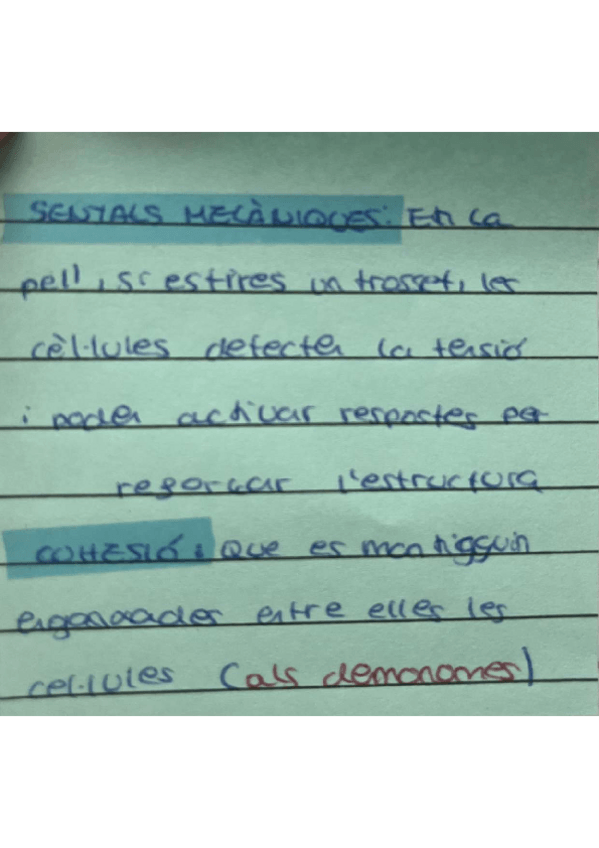 SENYALS MECÀNIQUES: En la
pell, si estires un trosset, les
cèl·lules detecten la tensió
i poden activar respostes per
reforçar l'estructura
COHESIÓ: Que es mantigguin
enganxades entre elles les
cel·lules (als demonomes)